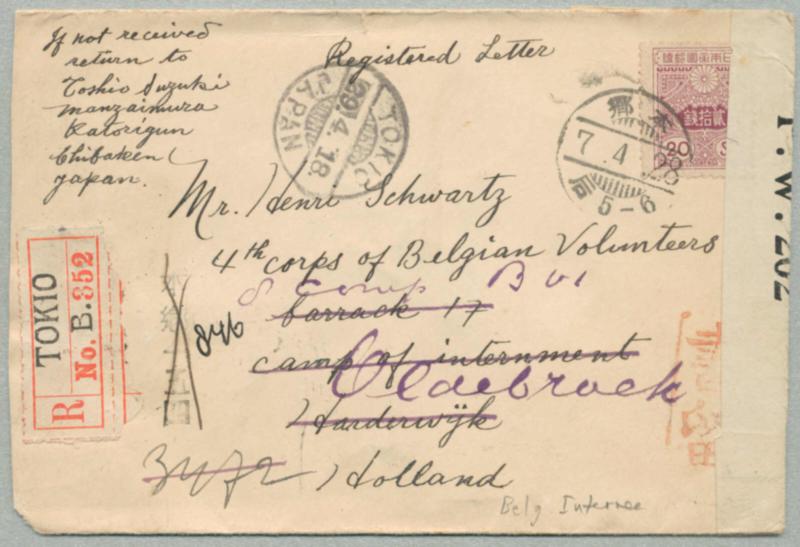 If not received
return to
Toshio Suzuki
manzaimura
Katorigun
Chibaken
Japan.
Registered Letter
TOKIO
29.4.18.
JAPAN
本鄉
7.4.28
5-6
貳拾錢
20 S
P.W. 202
Mr. Henri Schwartz
4th corps of Belgian Volunteers
8 Comp B 01
barrack 17
846
camp of internment
Oldebroek
Harderwijk
3472 Holland
Belg Internee
R TOKIO
No. B.352